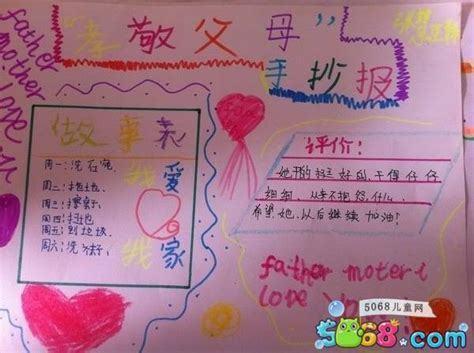 "孝敬父母"
手抄报
father
mother
Love
做事表
周一:洗
周二:拖地。
周三:擦桌子
周四:扫地
周五:到垃圾。
周六:洗袜子。
我爱
我家
评价!
挺好的,干得仔仔
细细,从来不抱怨,什么,
希望她,以后继续加油!
father moter i
love
5068儿童网
5068.com